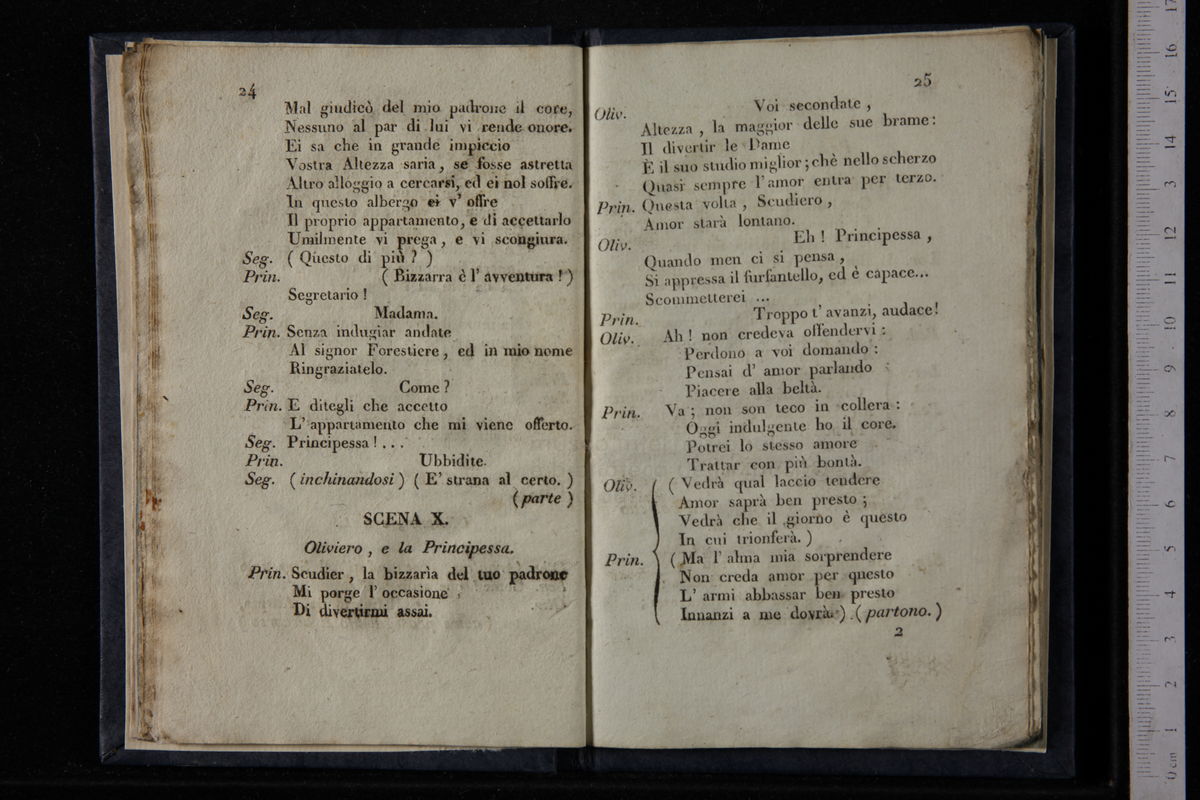 24
Mal giudicò del mio padrone il core,
Nessuno al par di lui vi rende onore.
Ei sa che in grande impiccio
Vostra Altezza saria, se fosse astretta
Altro alloggio a cercarsi, ed ei nol soffre.
In questo albergo ei v' offre
Il proprio appartamento, e di accettarlo
Umilmente vi prega, e vi scongiura.
Seg. ( Questo di più ? )
Prin. ( Bizzarra è l' avventura ! )
Segretario !
Seg. Madama.
Prin. Senza indugiar andate
Al signor Forestiere, ed in mio nome
Ringraziatelo.
Seg. Come ?
Prin. E ditegli che accetto
L' appartamento che mi viene offerto.
Seg. Principessa ! . . .
Prin. Ubbidite.
Seg. ( inchinandosi ) ( E' strana al certo. )
( parte )
SCENA X.
Oliviero , e la Principessa.
Prin. Scudier , la bizzarìa del tuo padrone
Mi porge l' occasione
Di divertirmi assai.
25
Oliv. Voi secondate ,
Altezza , la maggior delle sue brame :
Il divertir le Dame
È il suo studio miglior ; chè nello scherzo
Quasi sempre l' amor entra per terzo.
Prin. Questa volta , Scudiero ,
Amor starà lontano.
Oliv. Eh ! Principessa ,
Quando men ci si pensa ,
Si appressa il furfantello, ed è capace...
Scommetterei ...
Prin. Troppo t' avanzi, audace!
Oliv. Ah ! non credeva offendervi :
Perdono a voi domando :
Pensai d' amor parlando
Piacere alla beltà.
Prin. Va ; non son teco in collera :
Oggi indulgente ho il core.
Potrei lo stesso amore
Trattar con più bontà.
Oliv. ( Vedrà qual laccio tendere
Amor saprà ben presto ;
Vedrà che il giorno è questo
In cui trionferà. )
Prin. ( Ma l' alma mia sorprendere
Non creda amor per questo
L' armi abbassar ben presto
Innanzi a me dovrà. ) ( partono. )
2
0 cm 1 2 3 4 5 6 7 8 9 10 11 12 13 14 15 16 17